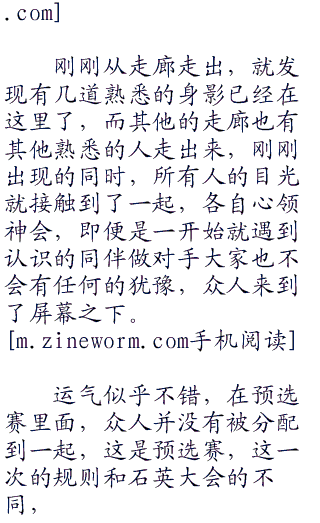 .com]
刚刚从走廊走出，就发
现有几道熟悉的身影已经在
这里了，而其他的走廊也有
其他熟悉的人走出来，刚刚
出现的同时，所有人的目光
就接触到了一起，各自心领
神会，即便是一开始就遇到
认识的同伴做对手大家也不
会有任何的犹豫，众人来到
了屏幕之下。
[m.zineworm.com手机阅读]
运气似乎不错，在预选
赛里面，众人并没有被分配
到一起，这是预选赛，这一
次的规则和石英大会的不
同，